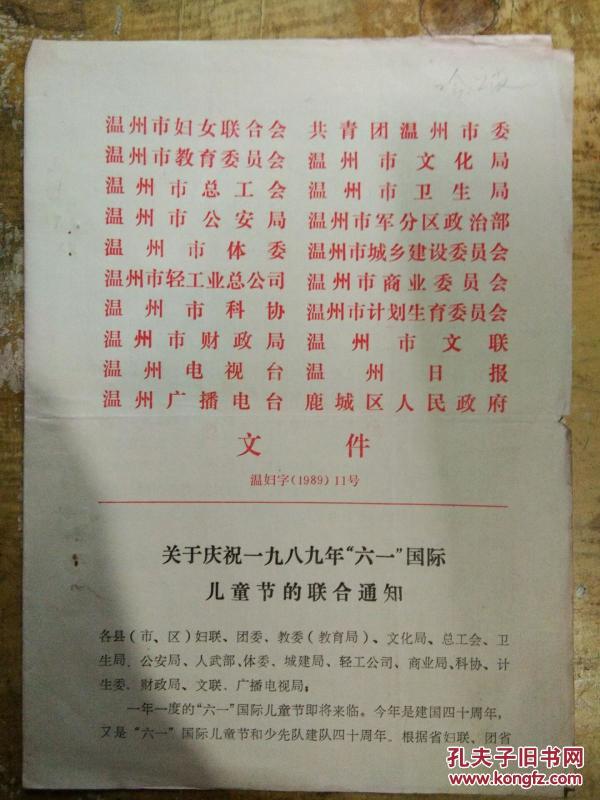 温州市妇女联合会 共青团温州市委
温州市教育委员会 温州市文化局
温州市总工会 温州市卫生局
温州市公安局 温州市军分区政治部
温州市体委 温州市城乡建设委员会
温州市轻工业总公司 温州市商业委员会
温州市科协 温州市计划生育委员会
温州市财政局 温州市文联
温州电视台 温州日报
温州广播电台 鹿城区人民政府
文件
温妇字(1989)11号
关于庆祝一九八九年“六一”国际
儿童节的联合通知
各县(市、区)妇联、团委、教委(教育局)、文化局、总工会、卫
生局、公安局、人武部、体委、城建局、轻工公司、商业局、科协、计
生委、财政局、文联、广播电视局:
一年一度的“六一”国际儿童节即将来临。今年是建国四十周年,
又是“六一”国际儿童节和少先队建队四十周年。根据省妇联、团省
孔夫子旧书网
www.kongfz.com